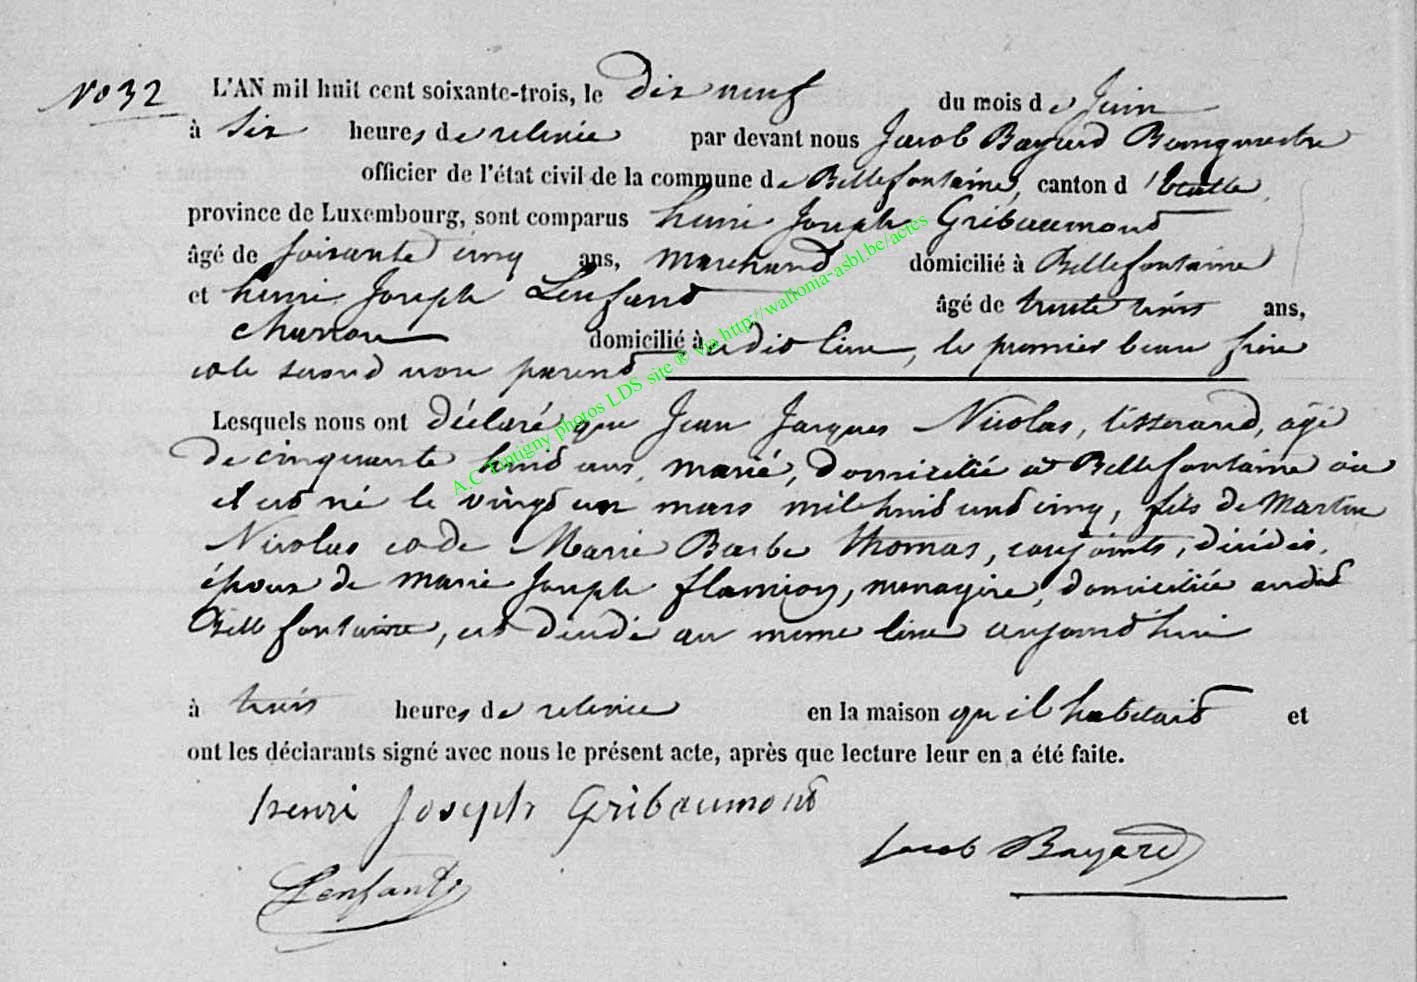 No 32
L'AN mil huit cent soixante-trois, le dix neuf du mois de Juin
à six heures de relevée par devant nous Jacob Bayard Bourgmestre
officier de l'état civil de la commune de Bellefontaine, canton d'Etalle,
province de Luxembourg, sont comparus henri Joseph Gribaumont
âgé de soixante cinq ans, marchand domicilié à Bellefontaine
et henri Joseph Lenfant âgé de trente trois ans,
charron domicilié à udit lieu, le premier beau frère
et le second non parent
Lesquels nous ont déclaré que Jean Jacques Nicolas, tisserand, agé
de cinquante huit ans, marié, domicilié à Bellefontaine où
il est né le vingt un mars mil huit cent cinq, fils de Martin
Nicolas et de Marie Barbe Thomas, conjoints, décédés,
époux de marie Joseph flamion, menagère, domiciliée audit
Bellefontaine, est décédé au meme lieu aujourd'hui
à trois heures de relevée en la maison qu'il habitait et
ont les déclarants signé avec nous le présent acte, après que lecture leur en a été faite.
henri Joseph Gribaumont
Jacob Bayard
Lenfant
A.C Tintigny photos LDS site ® via http://wallonia-asbl.be/actes